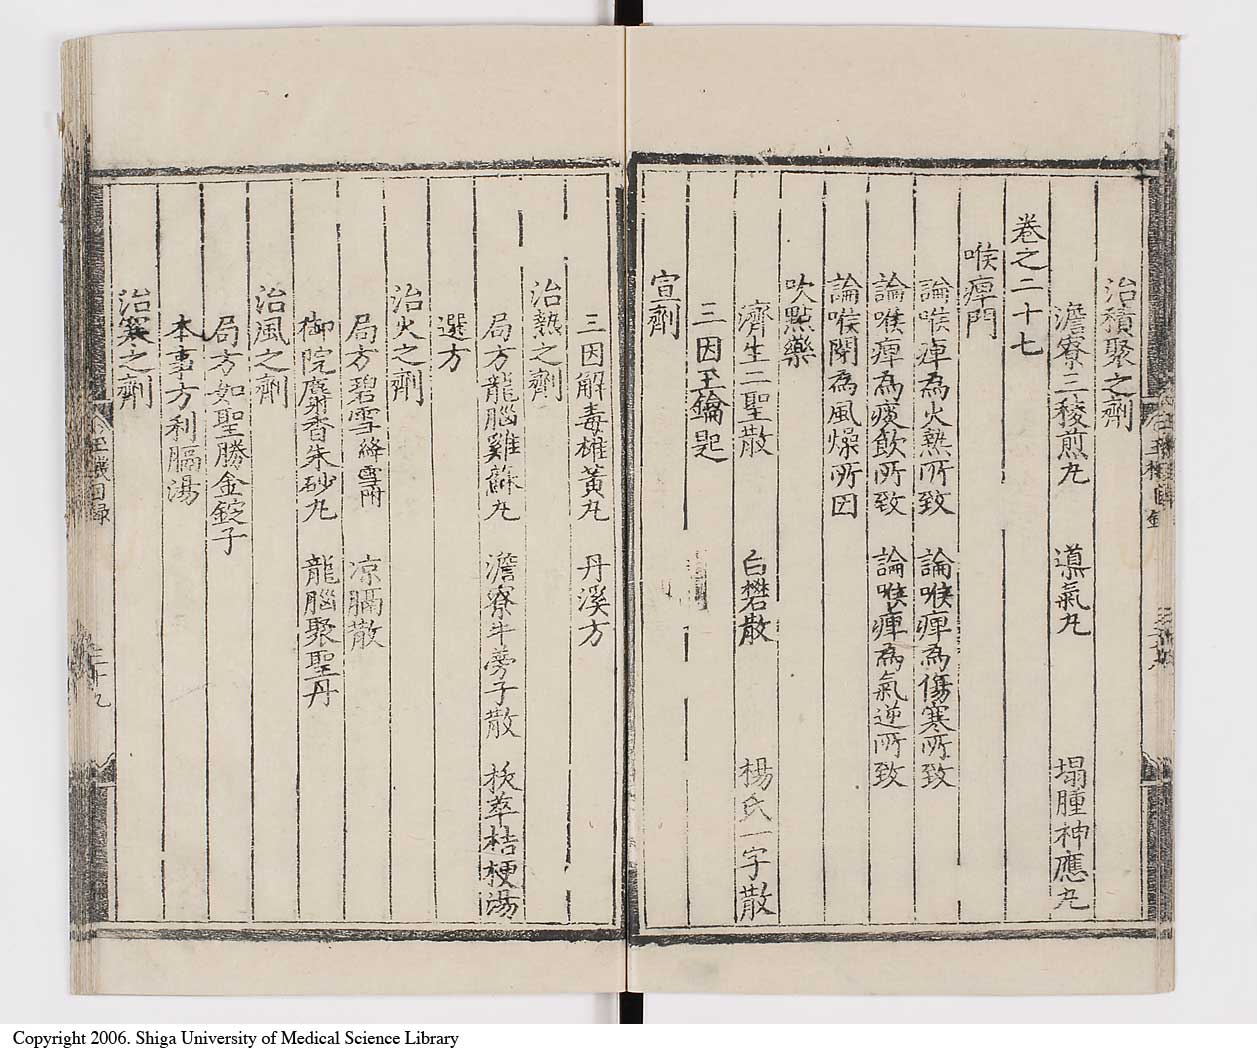 治積聚之劑
澹寮三稜煎丸 導氣丸 塌腫神應丸
卷之二十七
喉痺門
論喉痺為火熱所致 論喉痺為傷寒所致
論喉痺為痰飲所致 論喉痺為氣逆所致
論喉閉為風燥所因
吹點藥
濟生二聖散 白礬散 楊氏一字散
三因玉鑰匙
宣劑
三因解毒雄黃丸 丹溪方
治熱之劑
局方龍腦雞蘇丸 澹寮牛蒡子散 拔萃桔梗湯
選方
治火之劑
局方碧雪絳雪附 凉膈散
御院麝香朱砂丸 龍腦聚聖丹
治風之劑
局方如聖勝金錠子
本事方利膈湯
治寒之劑
玉機目録
Copyright 2006. Shiga University of Medical Science Library